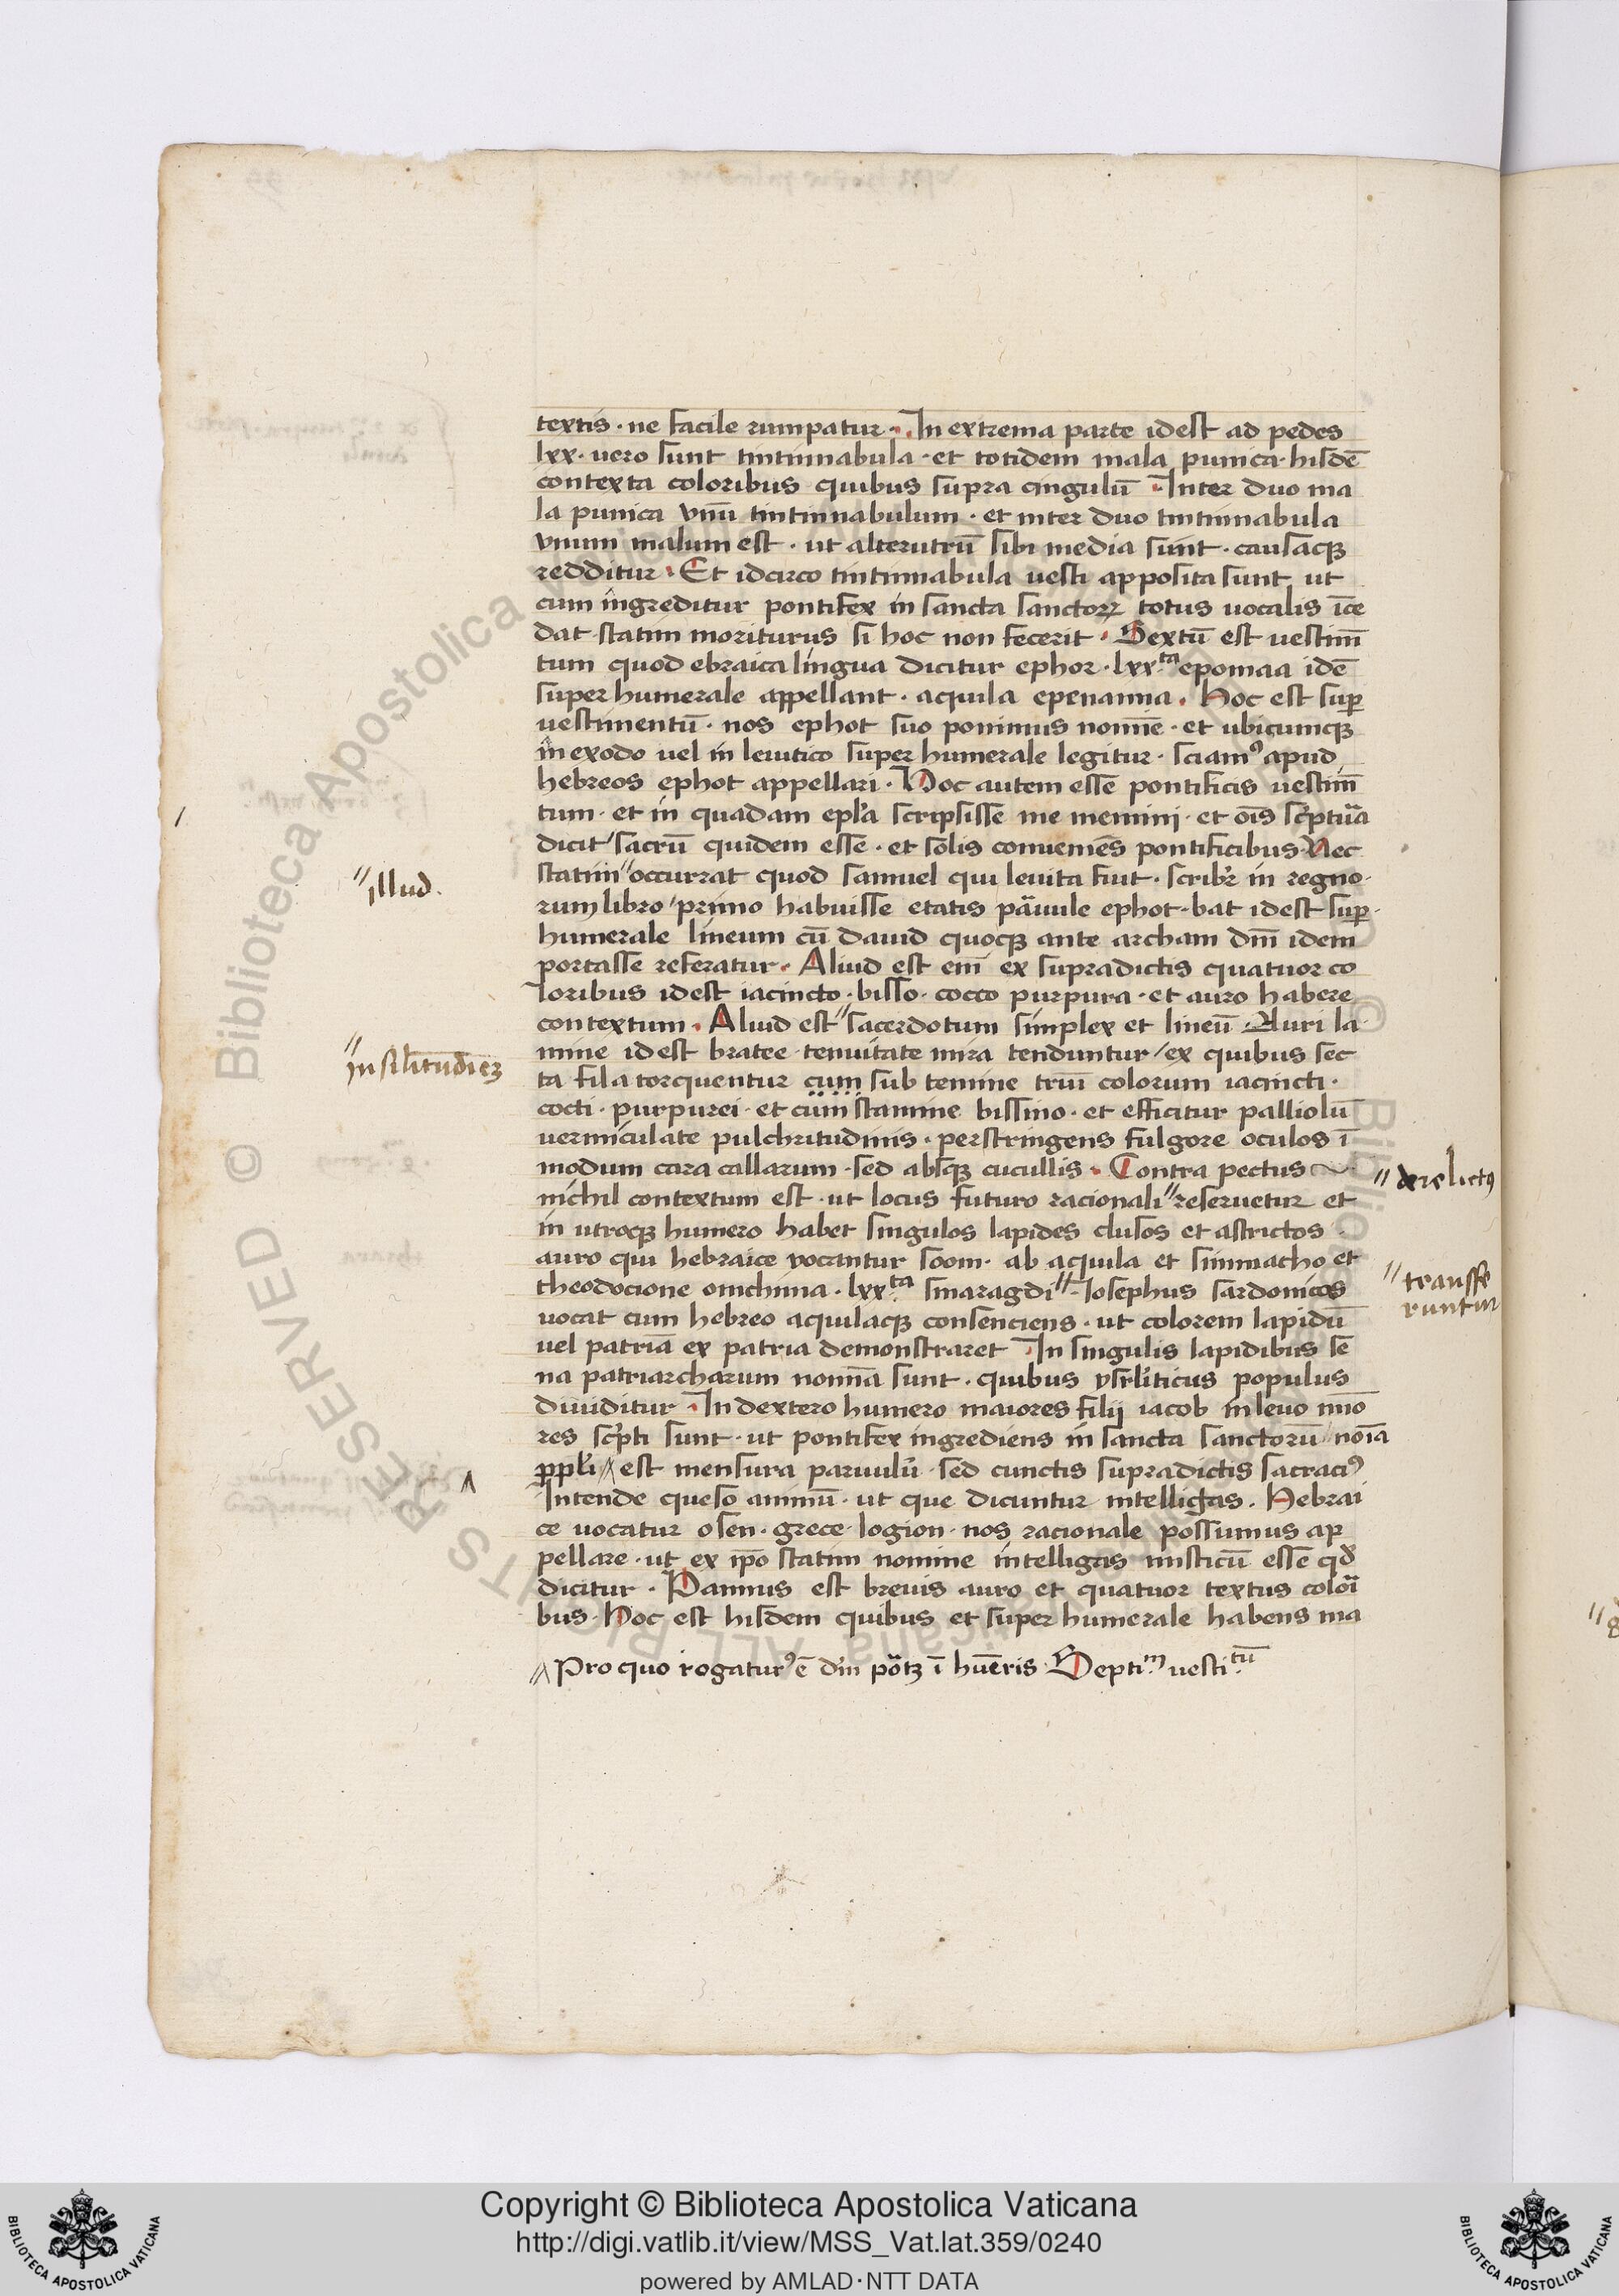 textis · ne facile rumpatur · In extrema parte id est ad pedes
lxx · uero sunt tintinnabula · et totidem mala punica · hisdē
contexta coloribus quibus supra cingulū · Inter duo ma
la punica vnū tintinnabulum · et inter duo tintinnabula
vnum malum est · ut alterutrū sibi media sunt · causaqꝫ
redditur · Et idcirco tintinnabula uesti apposita sunt ut
cum ingreditur pontifex in sancta sanctoꝝ totus uocalis īce
dat statim moriturus si hoc non fecerit · Sextū est uestim̄
tum quod ebraica lingua dicitur ephor · lxxᵗᵃ epomaa idē
super humerale appellant · aquila epenanma · Hoc est suꝑ
uestimentū · nos ephot suo ponimus nomīe · et ubicumqꝫ
in exodo uel in leuitico super humerale legitur · sciamꝰ apud
hebreos ephot appellari · Hoc autem esse pontificis uestim̄
tum · et in quadam epl̄a scripsisse me memini · et oīs sc̄ptura
dicit sacrū quidem esse · et solis conueniēs pontificibus · Nec
statim〃occurrat quod samuel qui leuita fuit · scribr̄ in regno
rum libro primo habuisse etatis paruule ephot · bat id est suꝑ
humerale lineum cū dauid quoqꝫ ante archam dm̄ idem
portasse referatur · Aliud est em̄ ex supradictis quatuor co
loribus id est iacincto · bisso · cocco purpura · et auro habere
contextum · Aliud est〃sacerdotum simplex et lineū · Auri la
mine id est bratee tenuitate mira tenduntur / ex quibus sec
ta fila torquentur cum sub temine triū colorum iacincti ·
cocti · purpurei · et cum stamine bissino · et efficitur palliolū
uermiculate pulchritudinis · perstringens fulgore oculos ī
modum cara callarum · sed absqꝫ cucullis · Contra pectus
nichil contextum est · ut locus futuro racionali〃reseruetur et
in utroqꝫ humero habet singulos lapides clusos et astrictos
auro qui hebraice vocantur soom · ab aquila et simmacho et
theodocione onichina · lxxᵗᵃ smaragdi〃Iosephus sardonicos
uocat cum hebreo aquilaqꝫ consenciens · ut colorem lapidū
uel patriā ex patria demonstraret · In singulis lapidibus se
na patriarcharum nomīa sunt · quibus ysrl̄iticus populus
diuiditur · In dextero humero maiores filij iacob in leuo mīo
res sc̄pti sunt · ut pontifex ingrediens in sancta sanctorū noīa
ppl̄i est mensura paruulū · sed cunctis supradictis sacraciꝰ
Intende queso animū · ut que dicuntur intelligas · Hebrai
ce uocatur osen · grece logion · nos racionale possumus ap
pellare · ut ex ip̄o statim nomine intelligas misticū esse qd̄
dicitur · Pannus est breuis auro et quatuor textus colori
bus · Hoc est hisdem quibus et super humerale habens ma
Pro quo rogaturꝰ ē dm̄ portꝫ ī hūeris · Septiᵐ uestiᵗū
〃illud.
〃in silitudīeꝫ
〃derelictꝰ
〃transfe
runtur
Copyright © Biblioteca Apostolica Vaticana
http://digi.vatlib.it/view/MSS_Vat.lat.359/0240
powered by AMLAD·NTT DATA
BIBLIOTECA APOSTOLICA VATICANA
BIBLIOTECA APOSTOLICA VATICANA